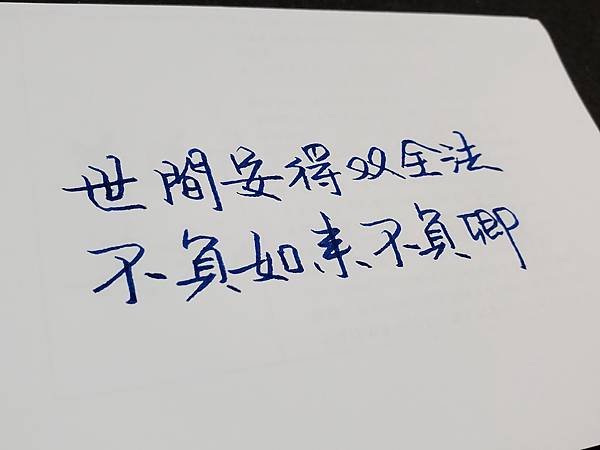 世間安得双全法
不負如来不負卿